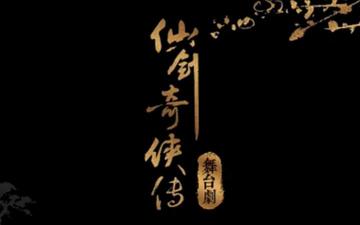 仙剑奇侠传
舞台劇